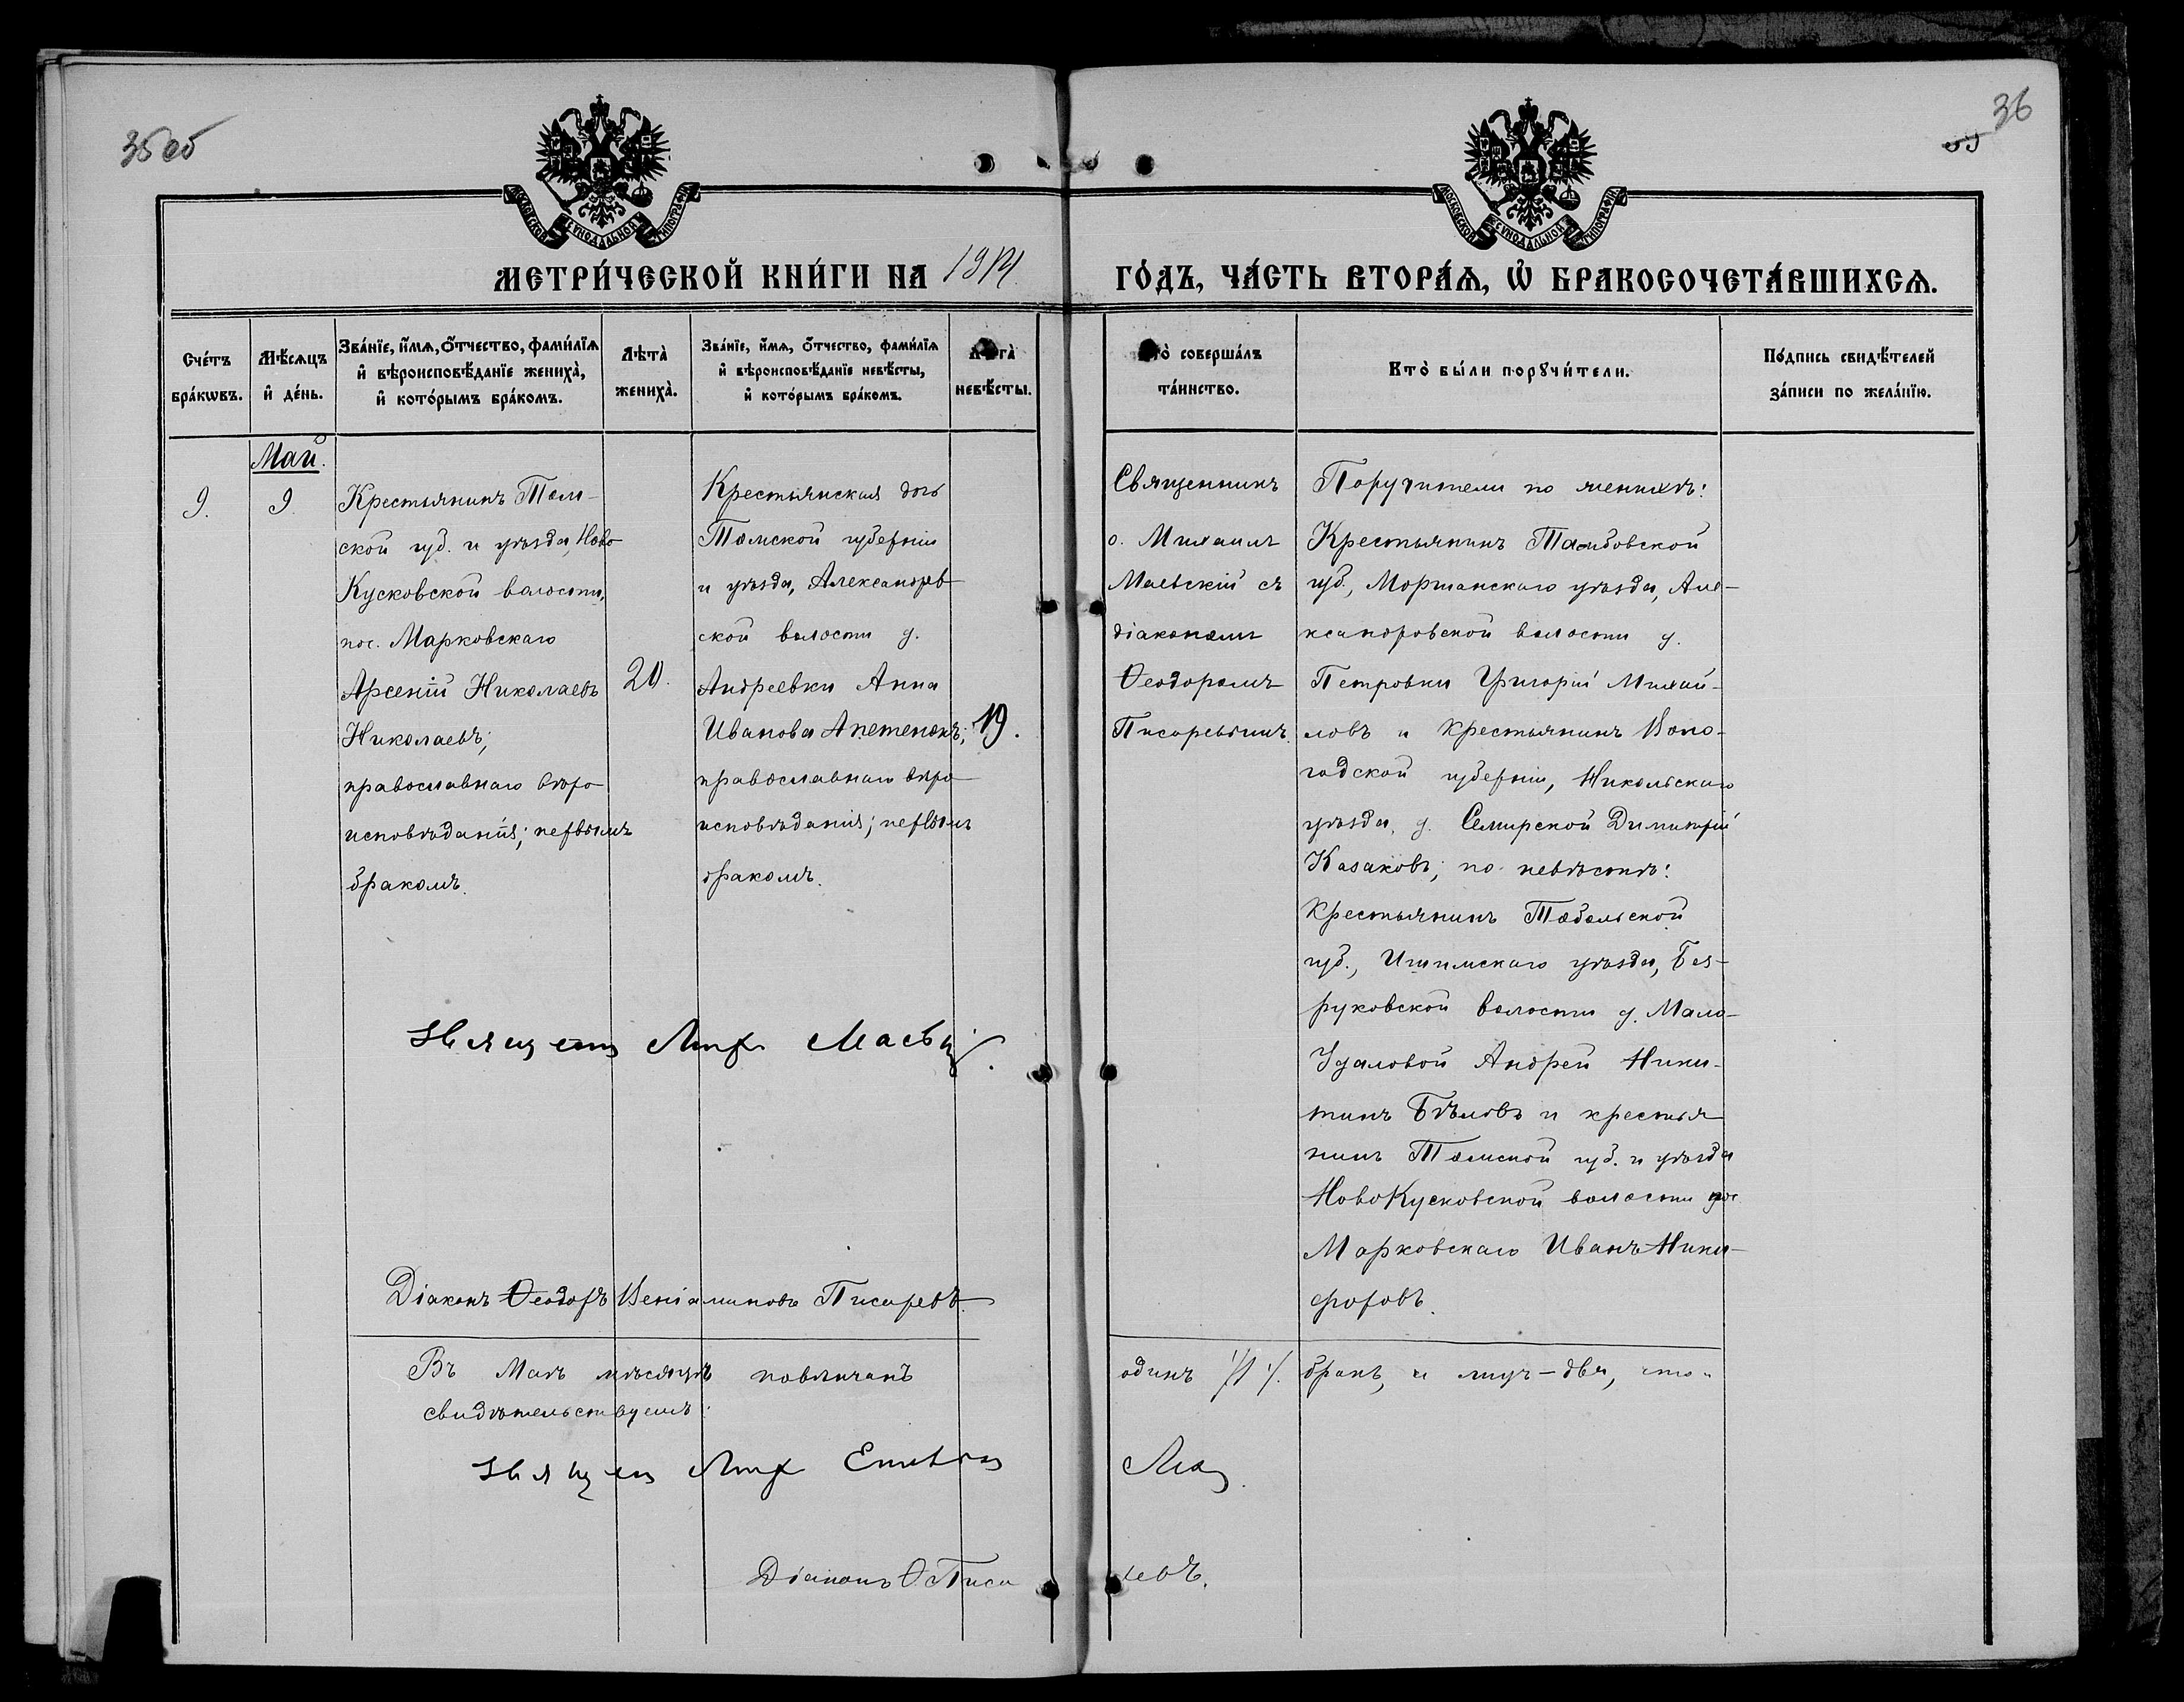 35 об
36
МОСКОВСКОЙ СѴНОДАЛЬНОЙ ТИПОГРАФІИ
МОСКОВСКОЙ СѴНОДАЛЬНОЙ ТИПОГРАФІИ
МЕТРИ́ЧЕСКОЙ КНИ́ГИ НА 1914
ГО́ДЪ, ЧА́СТЬ ВТОРА́Ѧ, Ѡ҆ БРАКОСОЧЕТА́ВШИХСѦ.
Сче́тъ бра́кѡвъ.
Мѣ́сѧцъ и҆ де́нь.
Зва́нїе, и҆́мѧ, ѻ҆́тчество, фами́лїѧ
и҆ вѣроисповѣ́данїе жениха̀,
и҆ кото́рымъ бра́комъ.
Лѣта̀ жениха̀.
Зва́нїе, и҆́мѧ, ѻ҆́тчество, фами́лїѧ
и҆ вѣроисповѣ́данїе невѣ́сты,
и҆ кото́рымъ бра́комъ.
Лѣта̀ невѣ́сты.
Кто̀ соверша́лъ
та́инство.
Кто̀ бы́ли порꙋчи́тели.
По́дпись свидѣ́телей
за́писи по жела́нїю.
Май.
9.
9
Крестьянинъ Том-
ской губ. и уѣзда, Ново
Кусковской волости,
пос. Марковскаго
Арсеній Николаевъ
Николаевъ;
православнаго вѣро-
исповѣданія; первымъ
бракомъ.
20.
Крестьянская дочь
Томской губерніи
и уѣзда, Александров-
ской волости д.
Андреевки Анна
Иванова Апетенокъ;
православнаго вѣро-
исповѣданія; первымъ
бракомъ.
19.
Священникъ
о. Михаилъ
Маевскій съ
діакономъ
Ѳеодоромъ
Писаревымъ.
Поручители по женихѣ:
Крестьянинъ Тамбовской
губ., Моршанскаго уѣзда, Але-
ксандровской волости д.
Петровки Григорій Михай-
ловъ и крестьянинъ Воло-
годской губерніи, Никольскаго
уѣзда, д. Семирской Димитрій
Казаковъ; по невѣстѣ:
крестьянинъ Тобольской
губ., Ишимскаго уѣзда, Без-
руковской волости д. Мало-
Удаловой Андрей Ники-
тинъ Бѣловъ и крестья
нинъ Томской губ. и уѣзда
НовоКусковской волости пос
Марковскаго Иванъ Ники-
форовъ.
Священ Мих Маевск.
Діаконъ Ѳеодоръ Веніаминовъ Писаревъ.
Въ Маѣ мѣсяцѣ повѣнчанъ одинъ /1/. бракъ, а лицъ - два, что
свидѣтельствуемъ:
Священ Мих
Діаконъ Ѳ. Писаревъ.